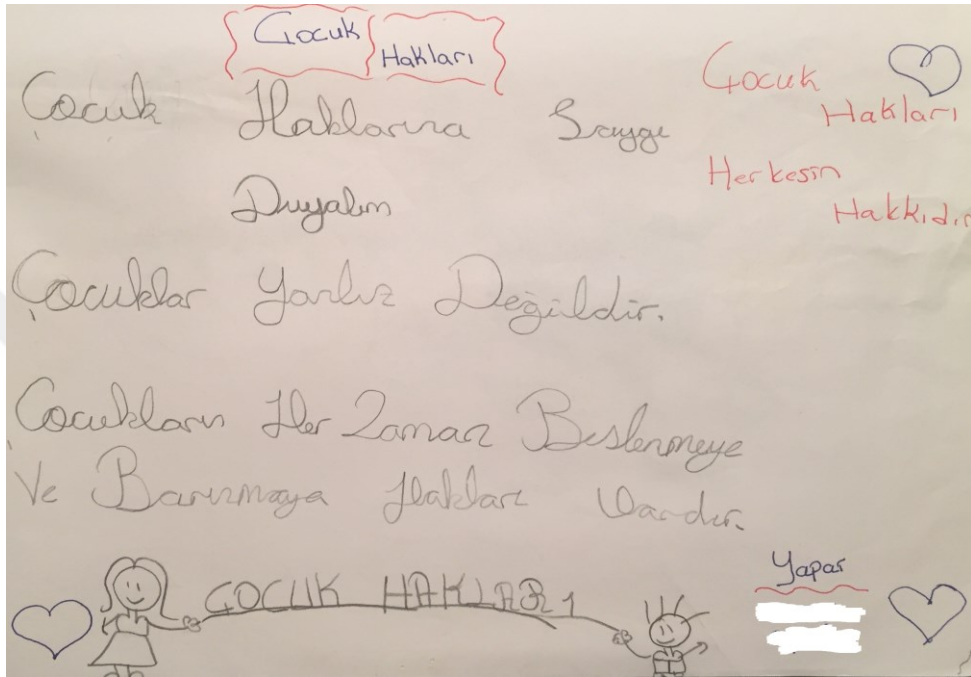 Çocuk Hakları
Çocuk Haklarına Saygı
Duyalım
Çocuk
Hakları
Herkesin
Hakkıdır
Çocuklar Yanlız Değildir.
Çocukların Her Zaman Beslenmeye
Ve Barınmaya Hakları Vardır.
ÇOCUK HAKLARI
Yapar